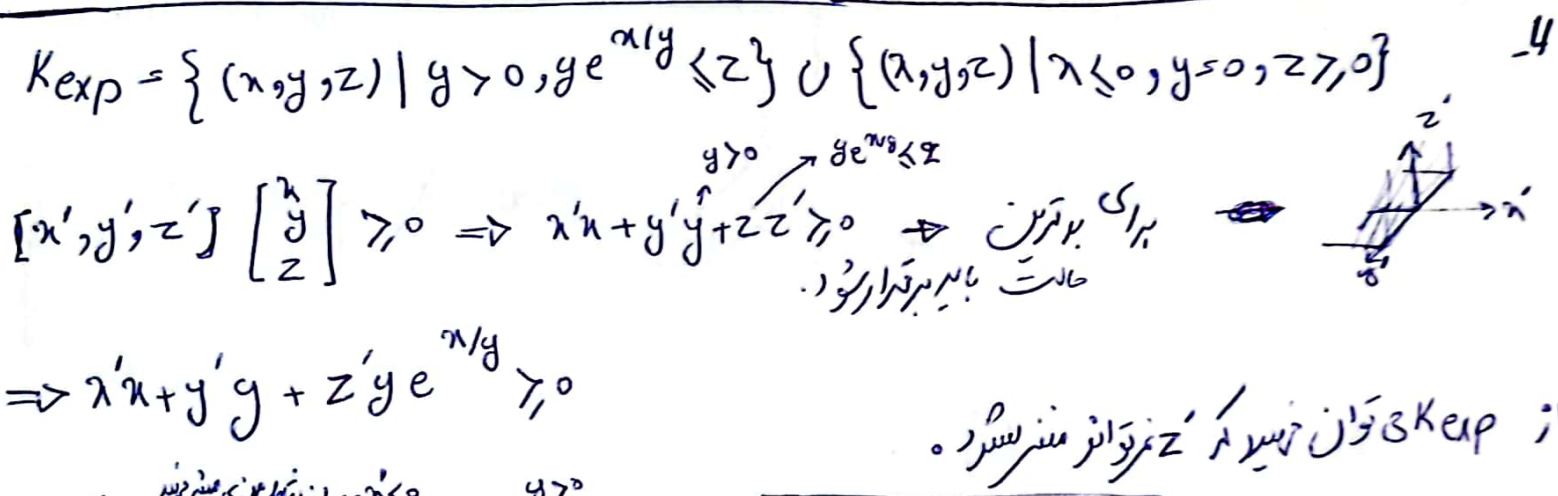 4-
K_exp = { (x,y,z) | y > 0, ye^{x/y} ≤ z } ∪ { (x,y,z) | x ≤ 0, y = 0, z ≥ 0 }
y>0 ye^{x/y} ≤ z z'
[x', y', z'] [x y z] ≥ 0 => x'x + y'y + zz' ≥ 0 => برای بدترین x'
حالت باید برقرار شود. y'
=> x'x + y'y + z'ye^{x/y} ≥ 0
از K_exp می توان فهمید که z' نمی تواند منفی شود.
y>0